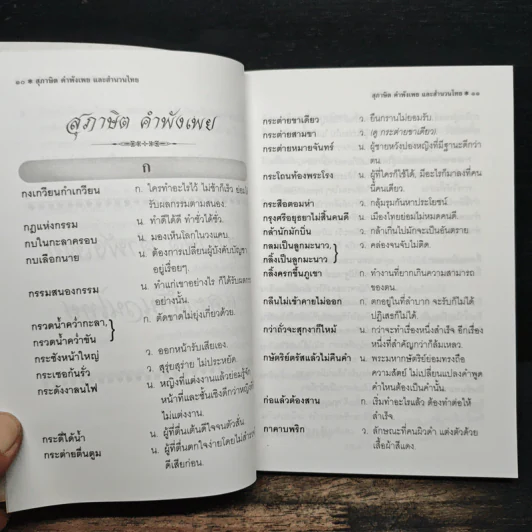 ๑๐ ● สุภาษิต คำพังเพย และสำนวนไทย
สุภาษิต คำพังเพย
ก
กงเกวียนกำเกวียน ก. ใครทำอะไรไว้ ไม่ช้าก็เร็ว ย่อมได้
รับผลกรรมตามสนอง
กฎแห่งกรรม น. ทำดีได้ดี ทำชั่วได้ชั่ว.
กบในกะลาครอบ น. มองเห็นโลกในวงแคบ.
กบเลือกนาย น. ต้องการเปลี่ยนผู้บังคับบัญชา
อยู่เรื่อยๆ.
กรรมสนองกรรม น. ทำแก่เขาอย่างไร ก็ได้รับผล
อย่างนั้น.
กรวดน้ำคว่ำกะลา, ก. ตัดขาดไม่ยุ่งเกี่ยวด้วย.
กรวดน้ำคว่ำขัน
กระชังหน้าใหญ่ ว. ออกหน้ารับเสียเอง.
กระเชอก้นรั่ว ว. สุรุ่ยสุร่าย ไม่ประหยัด.
กระดังงาลนไฟ น. หญิงที่แต่งงานแล้วย่อมรู้จัก
หน้าที่และชั้นเชิงดีกว่าหญิงที่
ไม่แต่งงาน.
กระดี่ได้น้ำ น. ผู้ที่ตื่นเต้นดีใจจนตัวสั่น
กระต่ายตื่นตูม น. ผู้ที่ตื่นตกใจง่ายโดยไม่
ดีเสียก่อน.
สุภาษิต คำพังเพย และสำนวนไทย ● ๑๑
กระต่ายขาเดียว ว. ยืนกรานไม่ยอมรับ.
กระต่ายสามขา ว. (ดู กระต่ายขาเดียว).
กระต่ายหมายจันทร์ น. ผู้ชายหวังปองหญิงที่มีฐานะดีกว่า
ตน.
กระโถนท้องพระโรง น. ผู้ที่ใครก็ใช้ได้, มีอะไรก็มาลงที่คน
นี้คนเดียว.
กระสือตอมห่า ว. กลุ้มรุมกันหาประโยชน์.
กรุงศรีอยุธยาไม่สิ้นคนดี น. เมืองไทยย่อมไม่หมดคนดี.
กล้านักมักบิ่น ว. กล้าเกินไปมักจะเป็นอันตราย
กลมเป็นลูกมะนาว, ว. คล่องจนจับไม่ติด.
กลิ้งเป็นลูกมะนาว
กลิ้งครกขึ้นภูเขา ก. ทำงานที่ยากเกินความสามารถ
ของตน.
กลืนไม่เข้าคายไม่ออก ก. ตกอยู่ในที่ลำบาก จะรับก็ไม่ได้
ปฏิเสธก็ไม่ได้.
กว่าถั่วจะสุกงาก็ไหม้ น. กว่าจะทำเรื่องหนึ่งสำเร็จ อีกเรื่อง
หนึ่งที่สำคัญกว่าก็ล้มเหลว.
กษัตริย์ตรัสแล้วไม่คืนคำ น. พระมหากษัตริย์ย่อมทรงถือ
ความสัตย์ ไม่เปลี่ยนแปลงคำพูด
คำไหนต้องเป็นคำนั้น.
ก่อแล้วต้องสาน ก. เริ่มทำอะไรแล้ว ต้องทำต่อให้
สำเร็จ.
กาคาบพริก ว. ลักษณะที่คนผิวดำ แต่งตัวด้วย
เสื้อผ้าสีแดง.